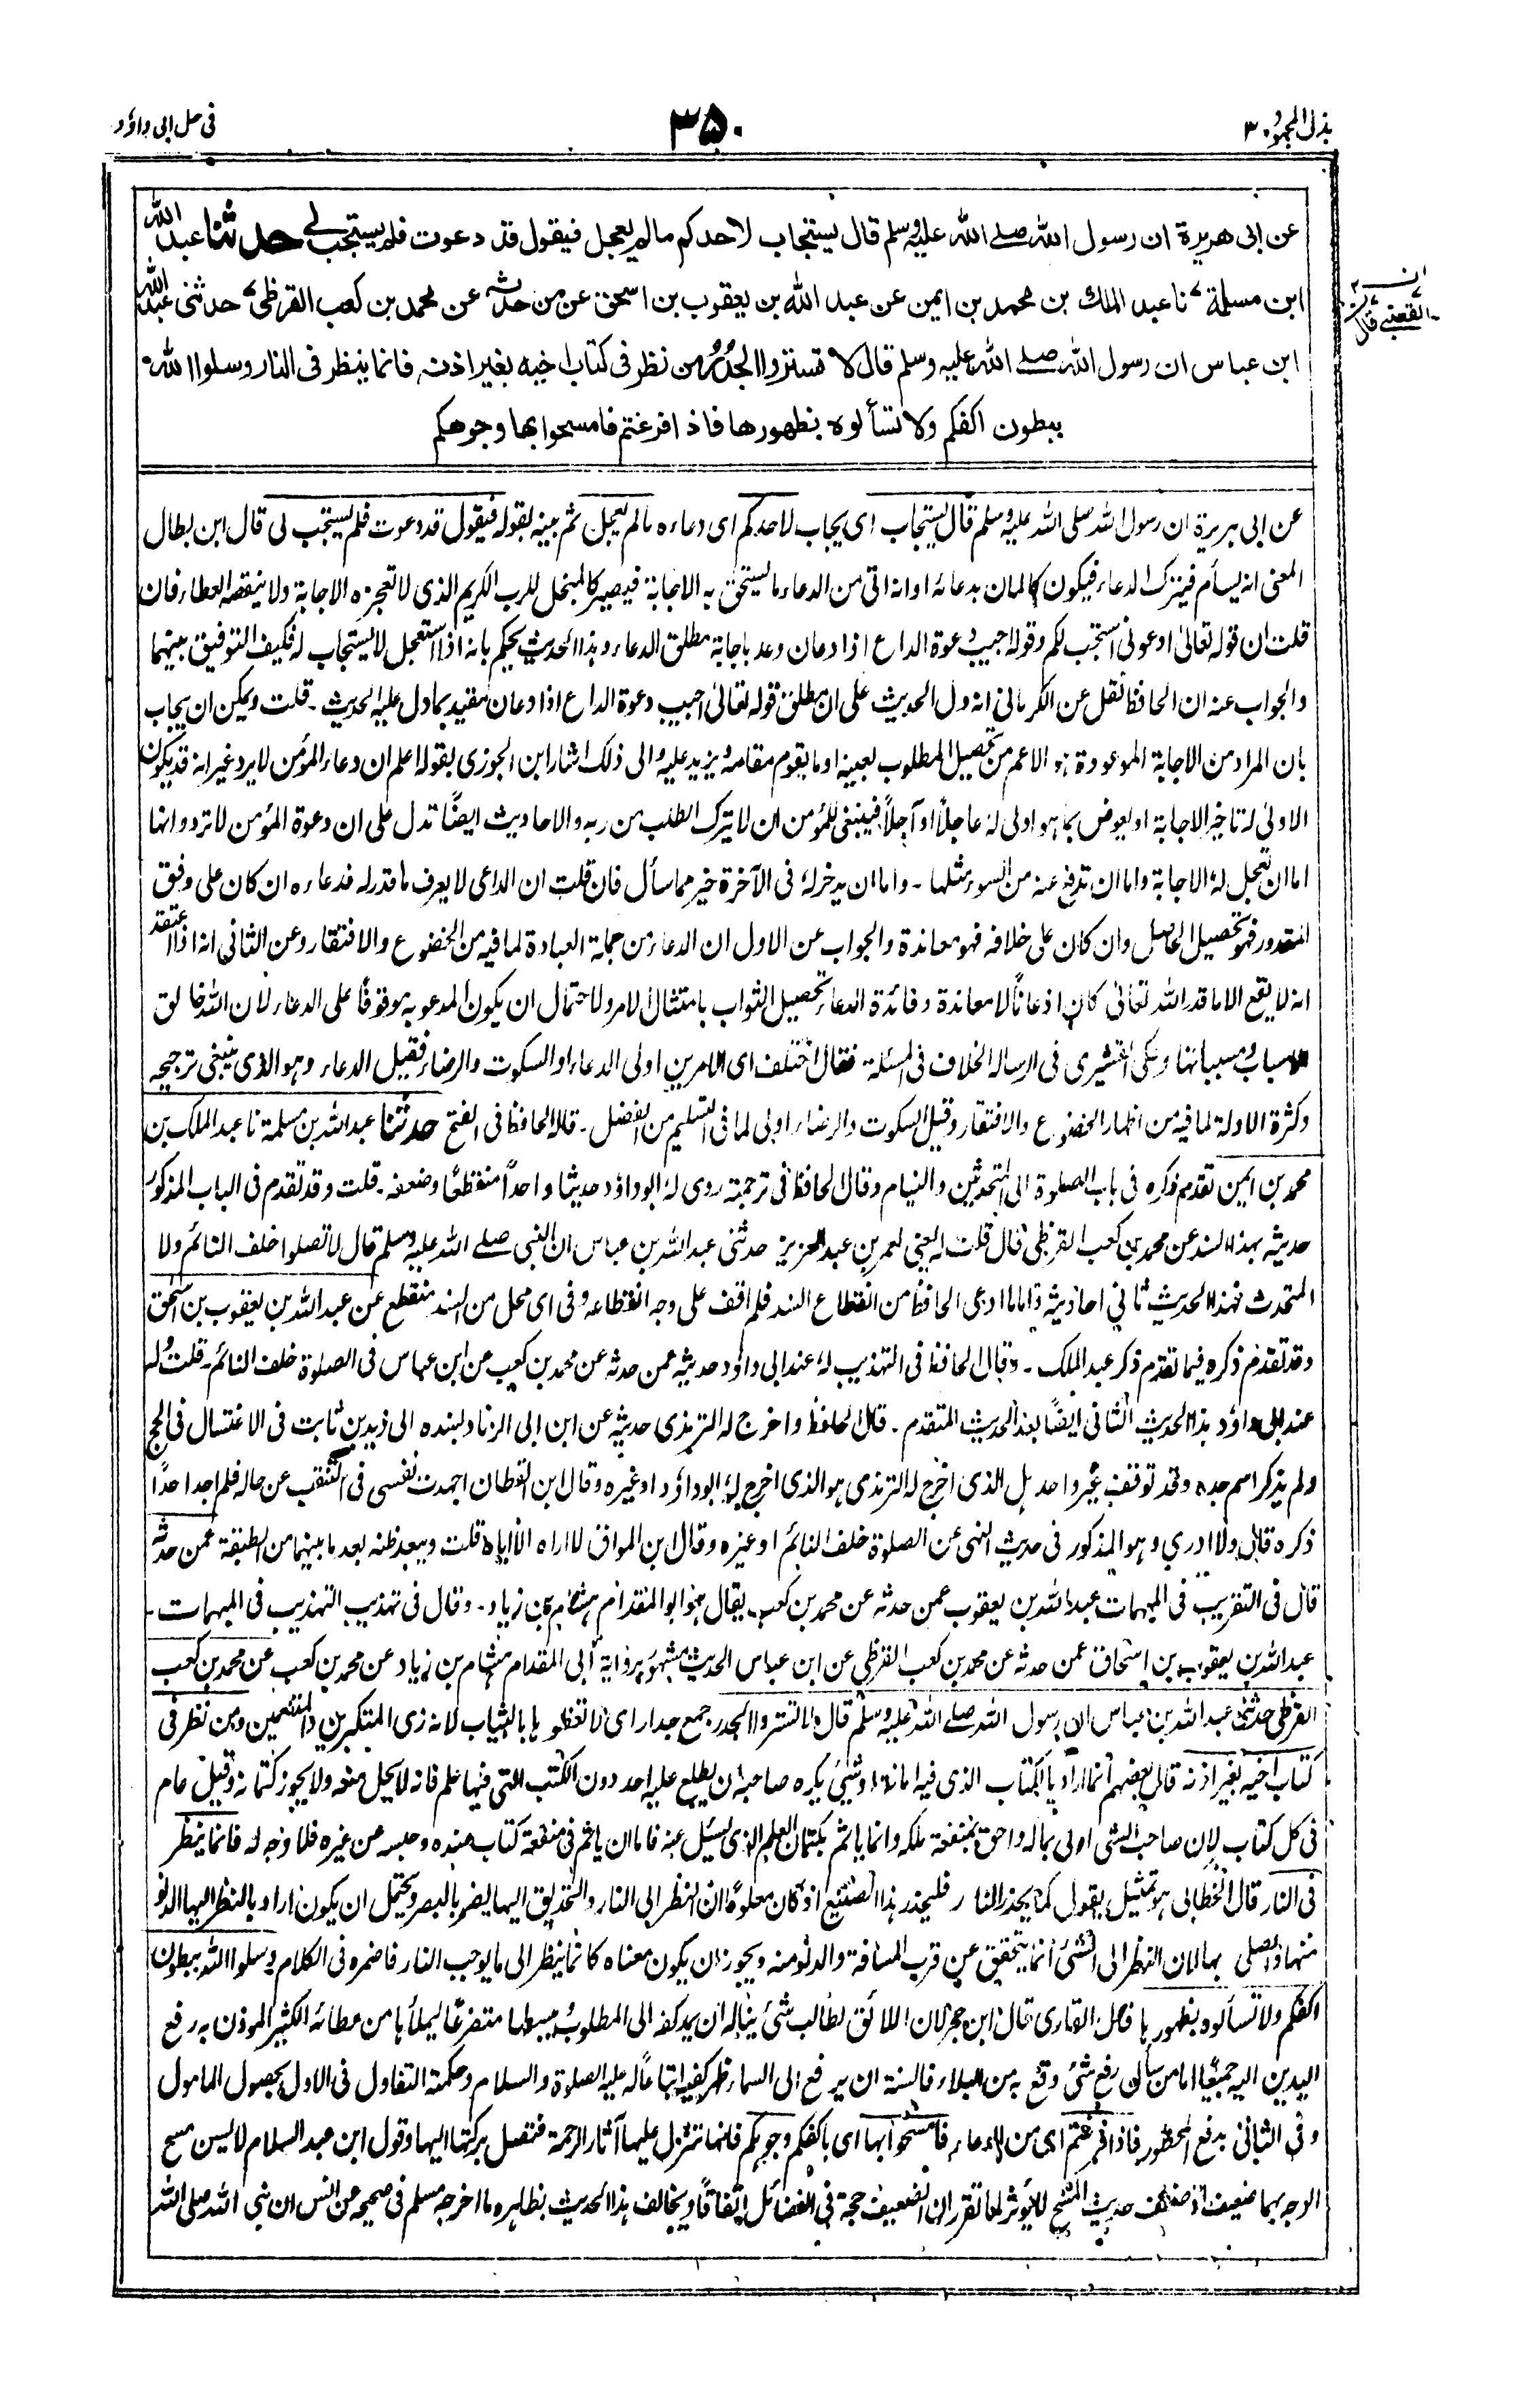 بذل المجهود ٣
٣٥٠
فی حل ابی داؤد
عن ابی هریرة ان رسول الله صلے الله علیه وسلم قال یستجاب لاحدکم مالم یعجل فیقول قد دعوت فلم یستجب لے حدثنا عبد الله
ابن مسلمة نا عبد الملك بن محمد بن ایمن عن عبد الله بن یعقوب بن اسحق عن من حدثه عن محمد بن کعب القرظی حدثنی عبد الله
القعنبے قال
ابن عباس ان رسول الله صلے الله علیه وسلم قال لا تستروا الجُدُرُ من نظر فی کتاب اخیه بغیر اذنه فانما ینظر فی النار وسلوا الله
ببطون اکفکم ولا تسألوه بظهورها فاذا فرغتم فامسحوا بها وجوهکم
عن ابی ہریرة ان رسول اللہ صلی اللہ علیہ وسلم قال یستجاب ای یجاب لاحدکم ای دعاءہ مالم یعجل ثم بینہ بقولہ فیقول قد دعوت فلم یستجب لی قال ابن بطال
المعنی انہ یسأم فیترک الدعاء فیکون کالمان بدعائہ او انہ اتی من الدعاء ما یستحق بہ الاجابة فیصیر کالمبخل للرب الکریم الذی لا تعجزہ الاجابة ولا ینقصہ العطاء فان
قلت ان قولہ تعالیٰ ادعونی استجب لکم وقولہ اجیب دعوة الداع اذا دعان وعد باجابة مطلق الدعاء وہذا الحدیث یحکم بانہ اذا استعجل لا یستجاب لہ فکیف التوفیق بینہما
والجواب عنہ ان الحافظ نقل عن الکرمانی انہ دل الحدیث علی ان مطلق قولہ تعالیٰ اجیب دعوة الداع اذا دعان مقید بما دل علیہ الحدیث ۔ قلت ویمکن ان یجاب
بان المراد من الاجابة الموعودة ہو الاعم من تحصیل المطلوب بعینہ او ما یقوم مقامہ ویزید علیہ والی ذلک اشار ابن الجوزی بقولہ اعلم ان دعاء المؤمن لا یرد غیر انہ قد یکون
الاولیٰ لہ تاخیر الاجابة او یعوض بما ہو اولی لہ عاجلاً او آجلاً فینبغی للمؤمن ان لا یترک الطلب من ربہ والاحادیث ایضًا تدل علی ان دعوة المؤمن لا ترد وانہا
اما ان تعجل لہ الاجابة واما ان تدفع عنہ من السوء مثلہا ۔ واما ان یدخر لہ فی الآخرة خیر مما سأل فان قلت ان الداعی لا یعرف ما قدر لہ فدعاءہ ان کان علی وفق
المقدور فہو تحصیل الحاصل وان کان علی خلافہ فہو معاندة والجواب عن الاول ان الدعاء من جملة العبادة لما فیہ من الخضوع والافتقار وعن الثانی انہ اذا اعتقد
انہ لا یقع الا ما قدر اللہ تعالیٰ کان اذعاناً لا معاندة وفائدة الدعاء تحصیل الثواب بامتثال الامر ولاحتمال ان یکون المدعو بہ موقوفًا علی الدعاء لان اللہ خالق
الاسباب ومسبباتہا وحکی القشیری فی الرسالہ الخلاف فی المسئلة فقال اختلف ای الامرین اولی الدعاء او السکوت والرضاء فقیل الدعاء وہو الذی ینبغی ترجیحہ
وکثرة الادلة لما فیہ من اظہار الخضوع والافتقار وقیل السکوت والرضاء اولی لما فی التسلیم من الفضل ۔ قالہ الحافظ فی الفتح حدثنا عبداللہ بن مسلمة نا عبدالملک بن
محمد بن ایمن تقدم ذکرہ فی باب الصلوة الی المتحدثین والنیام وقال الحافظ فی ترجمتہ روی لہ ابوداؤد حدیثا واحداً منقطعًا وضعفہ ۔ قلت وقد تقدم فی الباب المذکور
حدیثہ بہذا السند عن محمد بن کعب القرظی قال قلت لہ یعنی لعمر بن عبدالعزیز حدثنی عبداللہ بن عباس ان النبی صلے اللہ علیہ وسلم قال لا تصلوا خلف النائم ولا
المتحدث فہذا الحدیث ثانی احادیثہ واما ما ادعی الحافظ من انقطاع السند فلم اقف علی وجہ انقطاعہ وفی ای محل من السند منقطع عن عبداللہ بن یعقوب بن اسحٰق
وقد تقدم ذکرہ فیما تقدم ذکر عبدالملک ۔ وقال الحافظ فی التہذیب لہ عند ابی داؤد حدیثہ عمن حدثہ عن محمد بن کعب عن ابن عباس فی الصلوة خلف النائم ۔ قلت ولہ
عند ابی داؤد ہذا الحدیث الثانی ایضًا بعد الحدیث المتقدم ۔ قال الحافظ واخرج لہ الترمذی حدیثہ عن ابن ابی الزناد بسندہ الی زید بن ثابت فی الاغتسال فی الحج
ولم یذکر اسم جدہ وقد توقف غیر واحد ہل الذی اخرج لہ الترمذی ہو الذی اخرج لہ ابوداؤد او غیرہ وقال ابن القطان اجہدت نفسی فی التنقب عن حالہ فلم اجد احدًا
ذکرہ قال ولا ادری وہو المذکور فی حدیث النہی عن الصلوة خلف النائم او غیرہ وقال ابن المواق لا اراہ الا ایاہ قلت ویبعد ظنہ بعد ما بینہما من الطبقة عمن حدثہ
قال فی التقریب فی المبہمات عبداللہ بن یعقوب عمن حدثہ عن محمد بن کعب ۔ یقال ہو ابو المقدام ہشام بن زیاد ۔ وقال فی تہذیب التہذیب فی المبہمات ۔
عبداللہ بن یعقوب بن اسحاق عمن حدثہ عن محمد بن کعب القرظی عن ابن عباس الحدیث مشہور بروایة ابی المقدام ہشام بن زیاد عن محمد بن کعب عن محمد بن کعب
القرظی حدثنی عبداللہ بن عباس ان رسول اللہ صلے اللہ علیہ وسلم قال لا تستروا الجدر جمع جدار ای لا تغطوہا بالثیاب لانہ زی المتکبرین والمتنعمین ومن نظر فی
کتاب اخیہ بغیر اذنہ قال بعضہم انما اراد بالکتاب الذی فیہ امانة او شیٔ یکرہ صاحبہ ان یطلع علیہ احد دون الکتب التی فیہا علم فانہ لا یحل منعہ ولا یجوز کتمانہ وقیل عام
فی کل کتاب لان صاحب الشی اولی بمالہ واحق بمنفعة ملکہ وانما یاثم بکتمان العلم الذی یسئل عنہ فاما ان یاثم فی منفعة کتاب عندہ وحبسہ عن غیرہ فلا وجہ لہ فانما ینظر
فی النار قال الخطابی ہو تمثیل یقول کما یحذر النار فلیحذر ہذا الصنیع اذ کان معلومًا ان النظر الی النار والتحدیق الیہا یضر بالبصر ویحتمل ان یکون اراد بالنظر الیہا الدنو
منہا والصلی بہا لان النظر الی الشیٔ انما یتحقق عن قرب المسافة والدنو منہ ویجوز ان یکون معناہ کانما ینظر الی ما یوجب النار فاضمرہ فی الکلام وسلوا اللہ ببطون
اکفکم ولا تسألوہ بظہورہا قال القاری قال ابن حجر لان اللائق لطالب شیٔ ینالہ ان یمد کفہ الی المطلوب ویبسطہا متضرعًا لیملأہا من عطائہ الکثیر الموذن بہ رفع
الیدین الیہ جمیعًا اما من سأل رفع شیٔ وقع بہ من البلاء فالسنة ان یرفع الی السماء ظہر کفیہ اتباعًا لہ علیہ الصلوة والسلام وحکمتہ التفاول فی الاول بحصول المامول
وفی الثانی بدفع المحظور فاذا فرغتم ای من الدعاء فامسحوا بہا ای باکفکم وجوہکم فانہا تنزل علیہا آثار الرحمة فتصل برکتہا الیہا وقول ابن عبد السلام لا یسن مسح
الوجہ بہما ضعیف اذ ضعف حدیث المسح لا یؤثر لما تقرر ان الضعیف حجة فی الفضائل اتفاقًا ویخالف ہذا الحدیث بظاہرہ ما اخرجہ مسلم فی صحیحہ عن انس ان نبی اللہ صلی اللہ